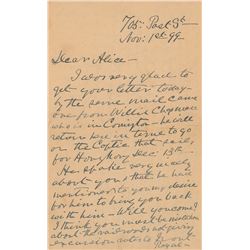 705 Post St
Nov: 1st 99
Dear Alice –
I was very glad to
get your letter today –
By the same mail came
one from Willie Chapman
who is in – he will
return here in time to go
on the Coptic that sails
for Hong Kong Dec 13th –
He spoke very nicely
about you & that he has
mentioned to your desire
for him to bring you back
with him – Will you come?
I think you must be mistaken
about the railroads not giving
excursion rates to